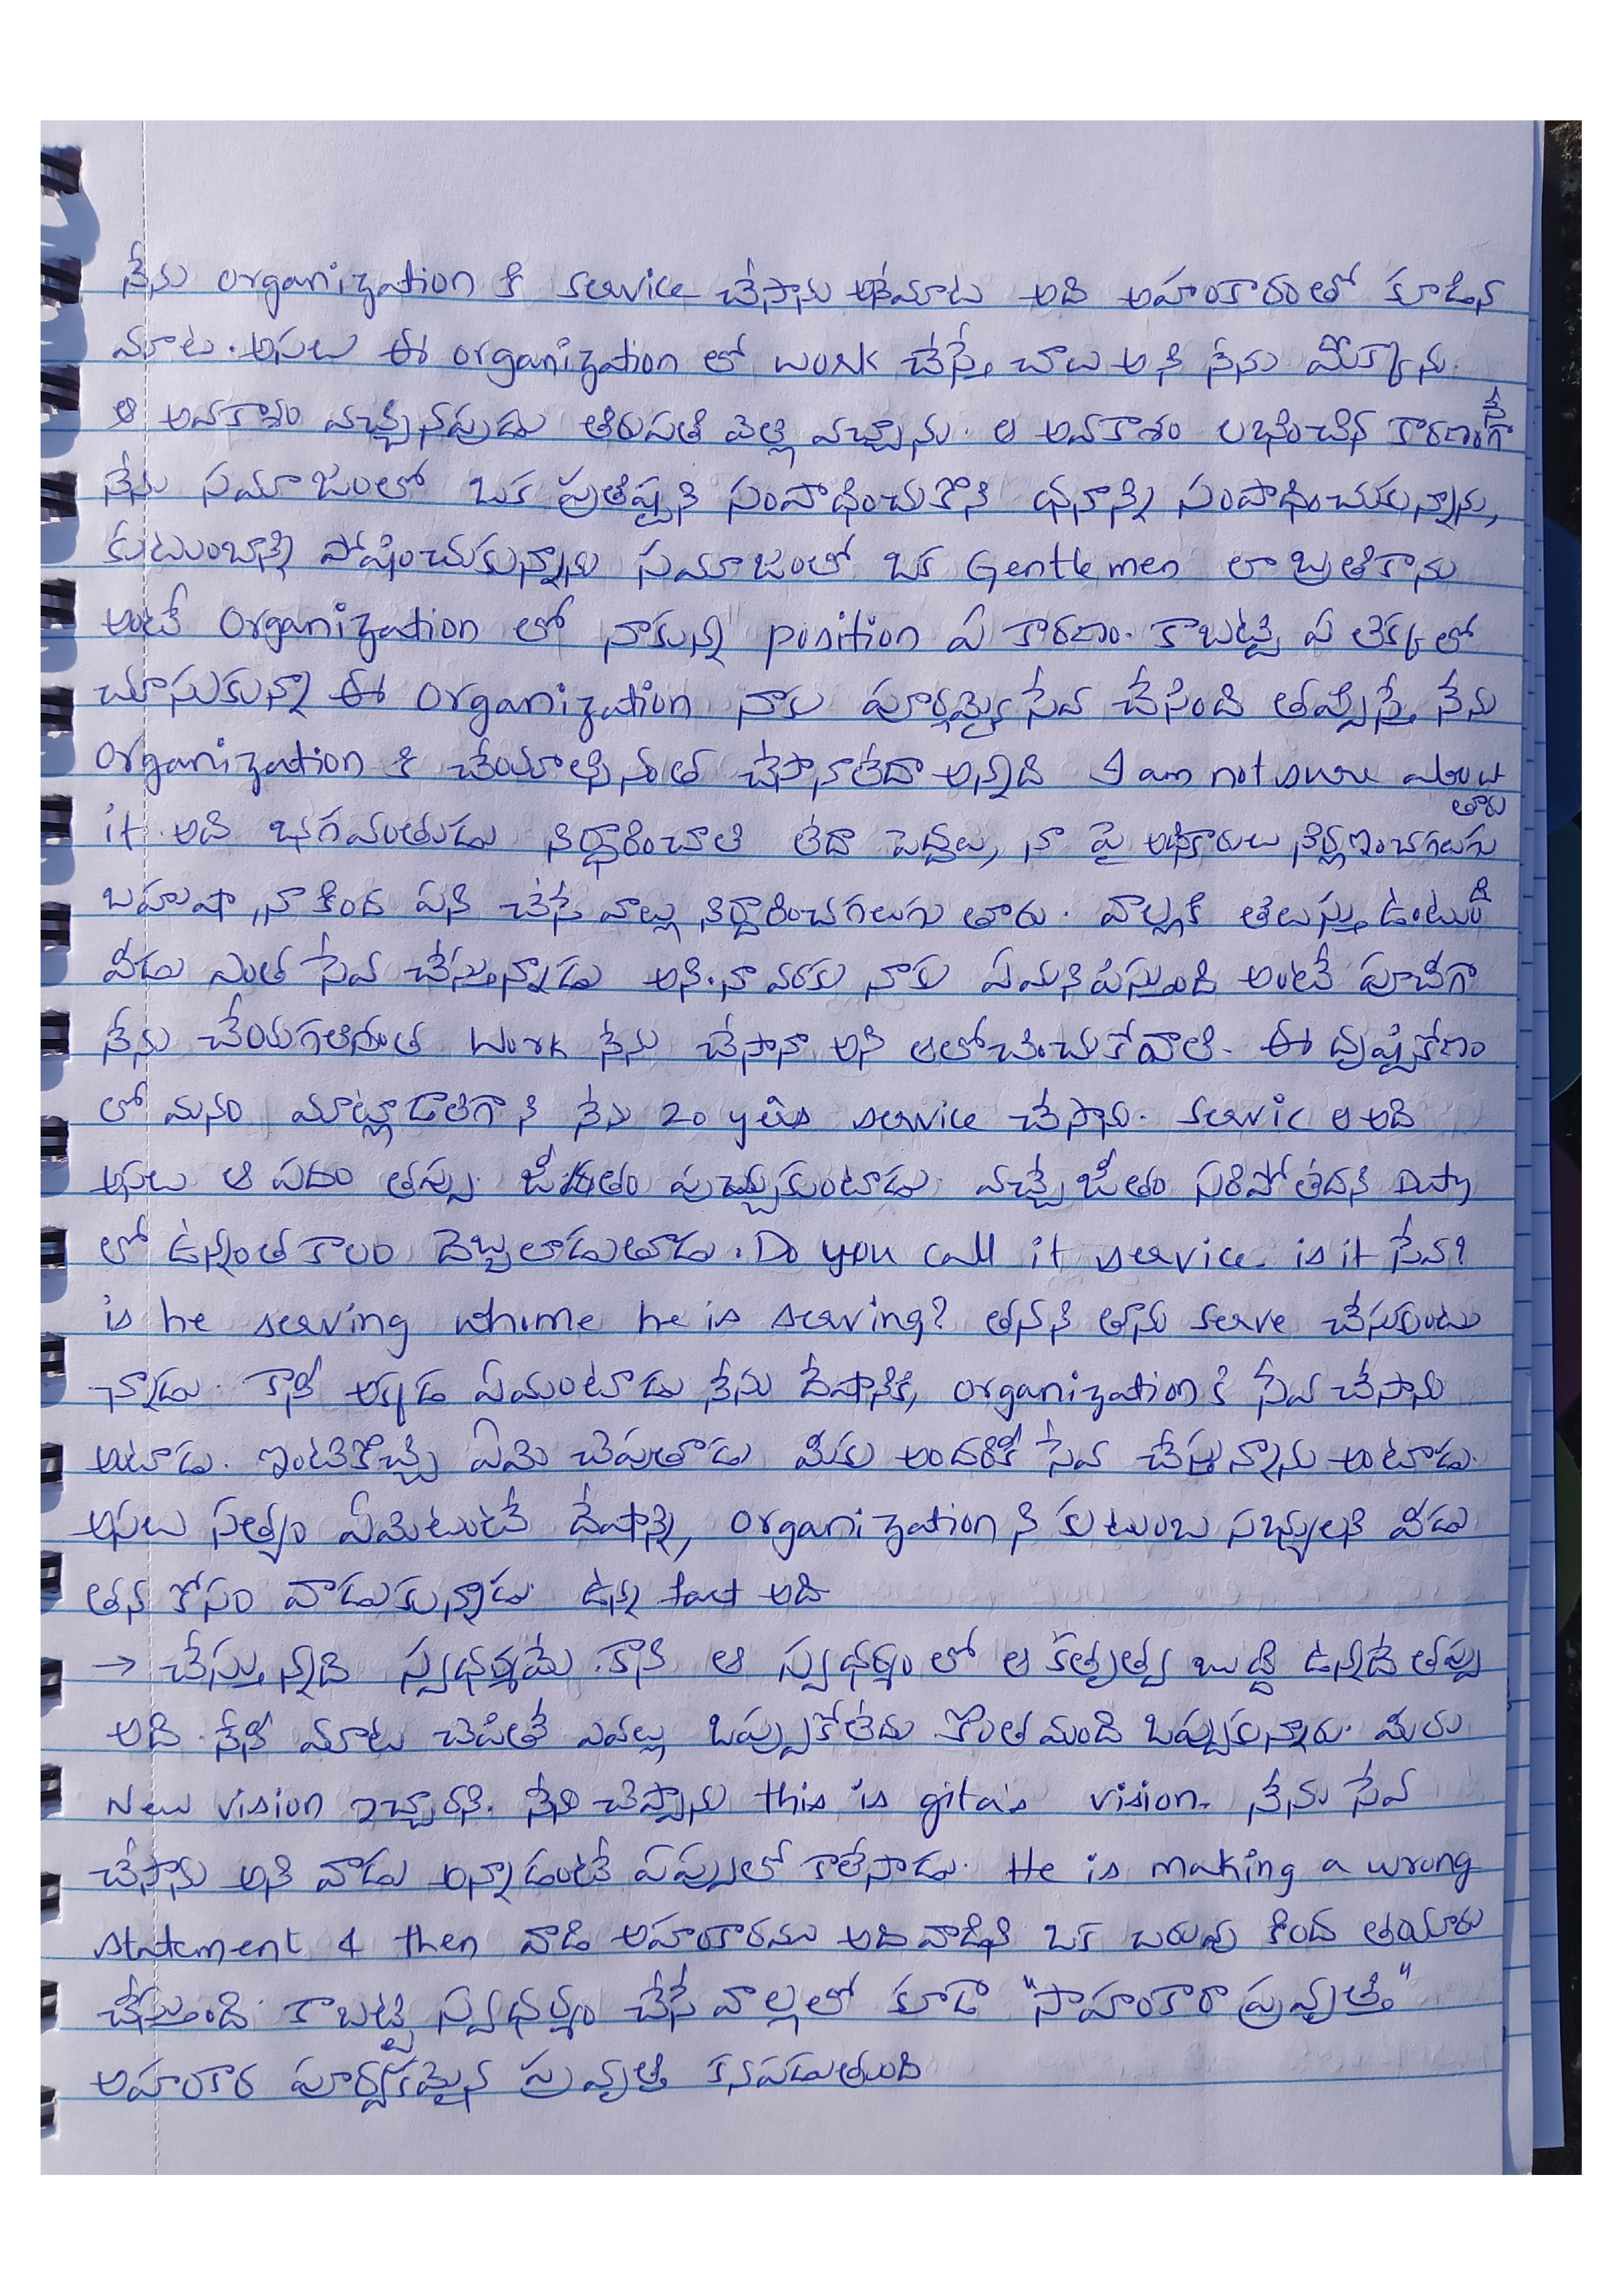 నేను organization కి service చేసాను అనేమాట అది అహంకారంతో కూడిన
మాట. అసలు ఈ organization లో work చేస్తే చాలు అని నేను మొక్కాను.
ఆ అవకాశం వచ్చినప్పుడు తిరుపతి వెళ్లి వచ్చాను. ఆ అవకాశం లభించిన కారణంగానే
నేను సమాజంలో ఒక ప్రతిష్టని సంపాధించుకొని ధనాన్ని సంపాధించుకున్నాను,
కుటుంబాన్ని పోషించుకున్నాను సమాజంలో ఒక Gentlemen లా బ్రతికాను
అంటే Organization లో నాకున్న position ఏ కారణం. కాబట్టి ఏ లెక్కలో
చూసుకున్నా ఈ Organization నాకు పూర్ణమైన సేవ చేసింది తప్పిస్తే నేను
Organization కి చేయాల్సినంత చేసానాలేదా అన్నది I am not sure about
it. అది భగవంతుడు నిర్ధారించాలి లేదా పెద్దలు, నా పై అధికారులు నిర్ణయించగలుగుతారు
బహుషా, నా కింద పని చేసే వాల్లు నిర్ధారించగలుగు తారు. వాల్లకి తెలుస్తు ఉంటుంది
వీడు ఎంత సేవ చేస్తున్నాడు అని. నా వరకు నాకు ఏమనిపిస్తుంది అంటే పూర్తిగా
నేను చేయగలిగినంత work నేను చేసానా అని ఆలోచించుకోవాలి. ఈ దృష్టికోణం
లో మనం మాట్లాడాలిగాని నేను 20 yers service చేసాను. servic ఆ అది
అసలు ఆ పదం తప్పు. జీతం పుచ్చుకుంటాడు. వచ్చే జీతం సరిపోలేదని Duty
లో ఉన్నంత కాలం దెబ్బలాడుతాడు. Do you call it service is it సేవ?
is he serving whome he is serving? తనని తాను serve చేసుకుంటు
న్నాడు. కానీ అక్కడ ఏమంటాడు నేను దేషానికి, organization కి సేవ చేసాను
అంటాడు. ఇంటికొచ్చి ఏమి చెపుతాడు మీకు అందరికీ సేవ చేస్తున్నాను అంటాడు.
అసలు సత్యం ఏమిటంటే దేషాన్ని, organization ని కుటుంబ సభ్యులని వీడు
తన కోసం వాడుకున్నాడు. ఉన్న fact అది
→ చేస్తున్నది స్వధర్మమే. కానీ ఆ స్వధర్మం లో ఆ కర్తృత్వ బుద్ధి ఉన్నదే తప్పు
అది. నేనీ మాట చెపితే ఎవల్లు ఒప్పుకోలేదు కొంతమంది ఒప్పుకున్నారు. మీరు
New vision ఇచ్చారని. నేను చెప్పాను this is gita's vision. నేను సేవ
చేసాను అని వాడు అన్నాడంటే పప్పులో కాలేసాడు. He is making a wrong
statement & then వాడి అహంకారము అది వాడిని ఒక బరువు కింద తయారు
చేస్తుంది. కాబట్టి స్వధర్మం చేసే వాల్లలో కూడా "సాహంకారా ప్రవృత్తి"
అహంకార పూర్వకమైన ప్రవృత్తి కనపడుతుంది